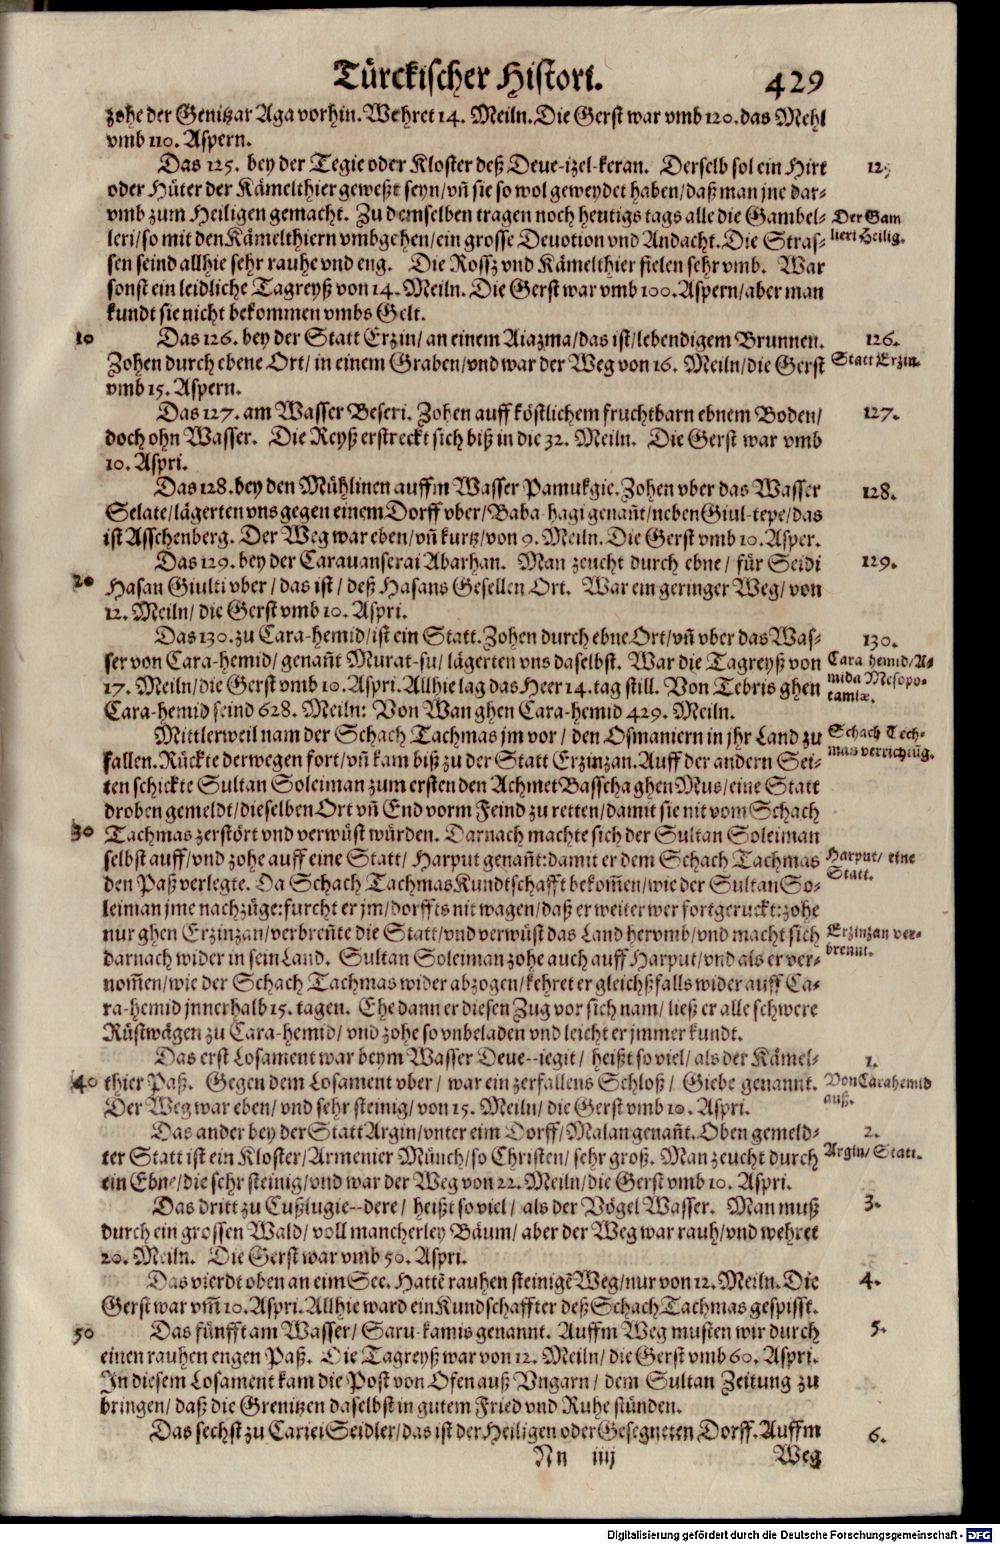 Türckischer Histori. 429
zohe der Genitzar Aga vorhin. Wehret 14. Meiln. Die Gerst war vmb 120. das Mehl
vmb 110. Aspern.
Das 125. bey der Tegie oder Kloster deß Deue-izel-keran. Derselb sol ein Hirt 125
oder Hüter der Kämelthier geweßt seyn/ vñ sie so wol geweydet haben/ daß man jne dar-
vmb zum Heiligen gemacht. Zu demselben tragen noch heutigs tags alle die Gambel- Der Gam
leri/ so mit den Kämelthiern vmbgehen/ ein grosse Deuotion vnd Andacht. Die Stras- lieri Heilig.
sen seind allhie sehr rauhe vnd eng. Die Rossz vnd Kämelthier fielen sehr vmb. War
sonst ein leidliche Tagreyß von 14. Meiln. Die Gerst war vmb 100. Aspern/ aber man
kundt sie nicht bekommen vmbs Gelt.
10 Das 126. bey der Statt Erzin/ an einem Aiazma/ das ist/ lebendigem Brunnen. 126.
Zohen durch ebene Ort/ in einem Graben/ vnd war der Weg von 16. Meiln/ die Gerst Statt Erzin.
vmb 15. Aspern.
Das 127. am Wasser Beseri. Zohen auff köstlichem fruchtbarn ebnem Boden/ 127.
doch ohn Wasser. Die Reyß erstreckt sich biß in die 32. Meiln. Die Gerst war vmb
10. Aspri.
Das 128. bey den Mühlinen auffm Wasser Pamukgie. Zohen vber das Wasser 128.
Selate/ lägerten vns gegen einem Dorff vber/ Baba-hagi genañt/ neben Giul-tepe/ das
ist Asschenberg. Der Weg war eben/ vñ kurtz/ von 9. Meiln. Die Gerst vmb 10. Asper.
Das 129. bey der Carauanserai Abarhan. Man zeucht durch ebne/ für Seidi 129.
20 Hasan Giulti vber/ das ist/ deß Hasans Gesellen Ort. War ein geringer Weg/ von
12. Meiln/ die Gerst vmb 10. Aspri.
Das 130. zu Cara-hemid/ ist ein Statt. Zohen durch ebne Ort/ vñ vber das Was- 130.
ser von Cara-hemid/ genañt Murat-su/ lägerten vns daselbst. War die Tagreyß von Cara hemid/ A-
17. Meiln/ die Gerst vmb 10. Aspri. Allhie lag das Heer 14. tag still. Von Tebris ghen mida Mesopo-
Cara-hemid seind 628. Meiln: Von Wan ghen Cara-hemid 429. Meiln. tamiæ.
Mittlerweil nam der Schach Tachmas jm vor/ den Osmaniern in jhr Land zu Schach Tech-
fallen. Rückte derwegen fort/ vñ kam biß zu der Statt Erzinzan. Auff der andern Sei- mas verrichtũg.
ten schickte Sultan Soleiman zum ersten den Achmet Basscha ghen Mus/ eine Statt
droben gemeldt/ dieselben Ort vñ End vorm Feind zu retten/ damit sie nit vom Schach
30 Tachmas zerstört vnd verwüst würden. Darnach machte sich der Sultan Soleiman
selbst auff/ vnd zohe auff eine Statt/ Harput genañt: damit er dem Schach Tachmas Harput/ eine
den Paß verlegte. Da Schach Tachmas Kundtschafft bekom̃en/ wie der Sultan So- Statt.
leiman jme nachzüge: furcht er jm/ dorffts nit wagen/ daß er weiter wer fortgeruckt: zohe
nur ghen Erzinzan/ verbreñte die Statt/ vnd verwüst das Land hervmb/ vnd macht sich Erzinzan ver-
darnach wider in sein Land. Sultan Soleiman zohe auch auff Harput/ vnd als er ver- brennt.
nom̃en/ wie der Schach Tachmas wider abzogen/ kehret er gleichßfalls wider auff Ca-
ra-hemid jnnerhalb 15. tagen. Ehe dann er diesen Zug vor sich nam/ ließ er alle schwere
Rüstwägen zu Cara-hemid/ vnd zohe so vnbeladen vnd leicht er jmmer kundt.
Das erst Losament war beym Wasser Deue--iegit/ heißt so viel/ als der Kämel- 1.
40 thier Paß. Gegen dem Losament vber/ war ein zerfallens Schloß/ Giebe genannt. Von Carahemid
Der Weg war eben/ vnd sehr steinig/ von 15. Meiln/ die Gerst vmb 10. Aspri. auß.
Das ander bey der Statt Argin/ vnter eim Dorff/ Malan genañt. Oben gemeld- 2.
ter Statt ist ein Kloster/ Armenier Münch/ so Christen/ sehr groß. Man zeucht durch Argin/ Statt.
ein Ebne/ die sehr steinig/ vnd war der Weg von 22. Meiln/ die Gerst vmb 10. Aspri.
Das dritt zu Cußlugie--dere/ heißt so viel/ als der Vögel Wasser. Man muß 3.
durch ein grossen Wald/ voll mancherley Bäum/ aber der Weg war rauh/ vnd wehret
20. Meiln. Die Gerst war vmb 50. Aspri.
Das vierdt oben an eim See. Hattẽ rauhen steinigẽ Weg/ nur von 12. Meiln. Die 4.
Gerst war vm̃ 10. Aspri. Allhie ward ein Kundschaffter deß Schach Tachmas gespisst.
50 Das fünfft am Wasser/ Saru-kamis genannt. Auffm Weg musten wir durch 5.
einen rauhen engen Paß. Die Tagreyß war von 12. Meiln/ die Gerst vmb 60. Aspri.
In diesem Losament kam die Post von Ofen auß Vngarn/ dem Sultan Zeitung zu
bringen/ daß die Grenitzen daselbst in gutem Fried vnd Ruhe stünden.
Das sechst zu Cariei Seidler/ das ist der Heiligen oder Gesegneten Dorff. Auffm 6.
Nn iiij Weg
Digitalisierung gefördert durch die Deutsche Forschungsgemeinschaft - DFG